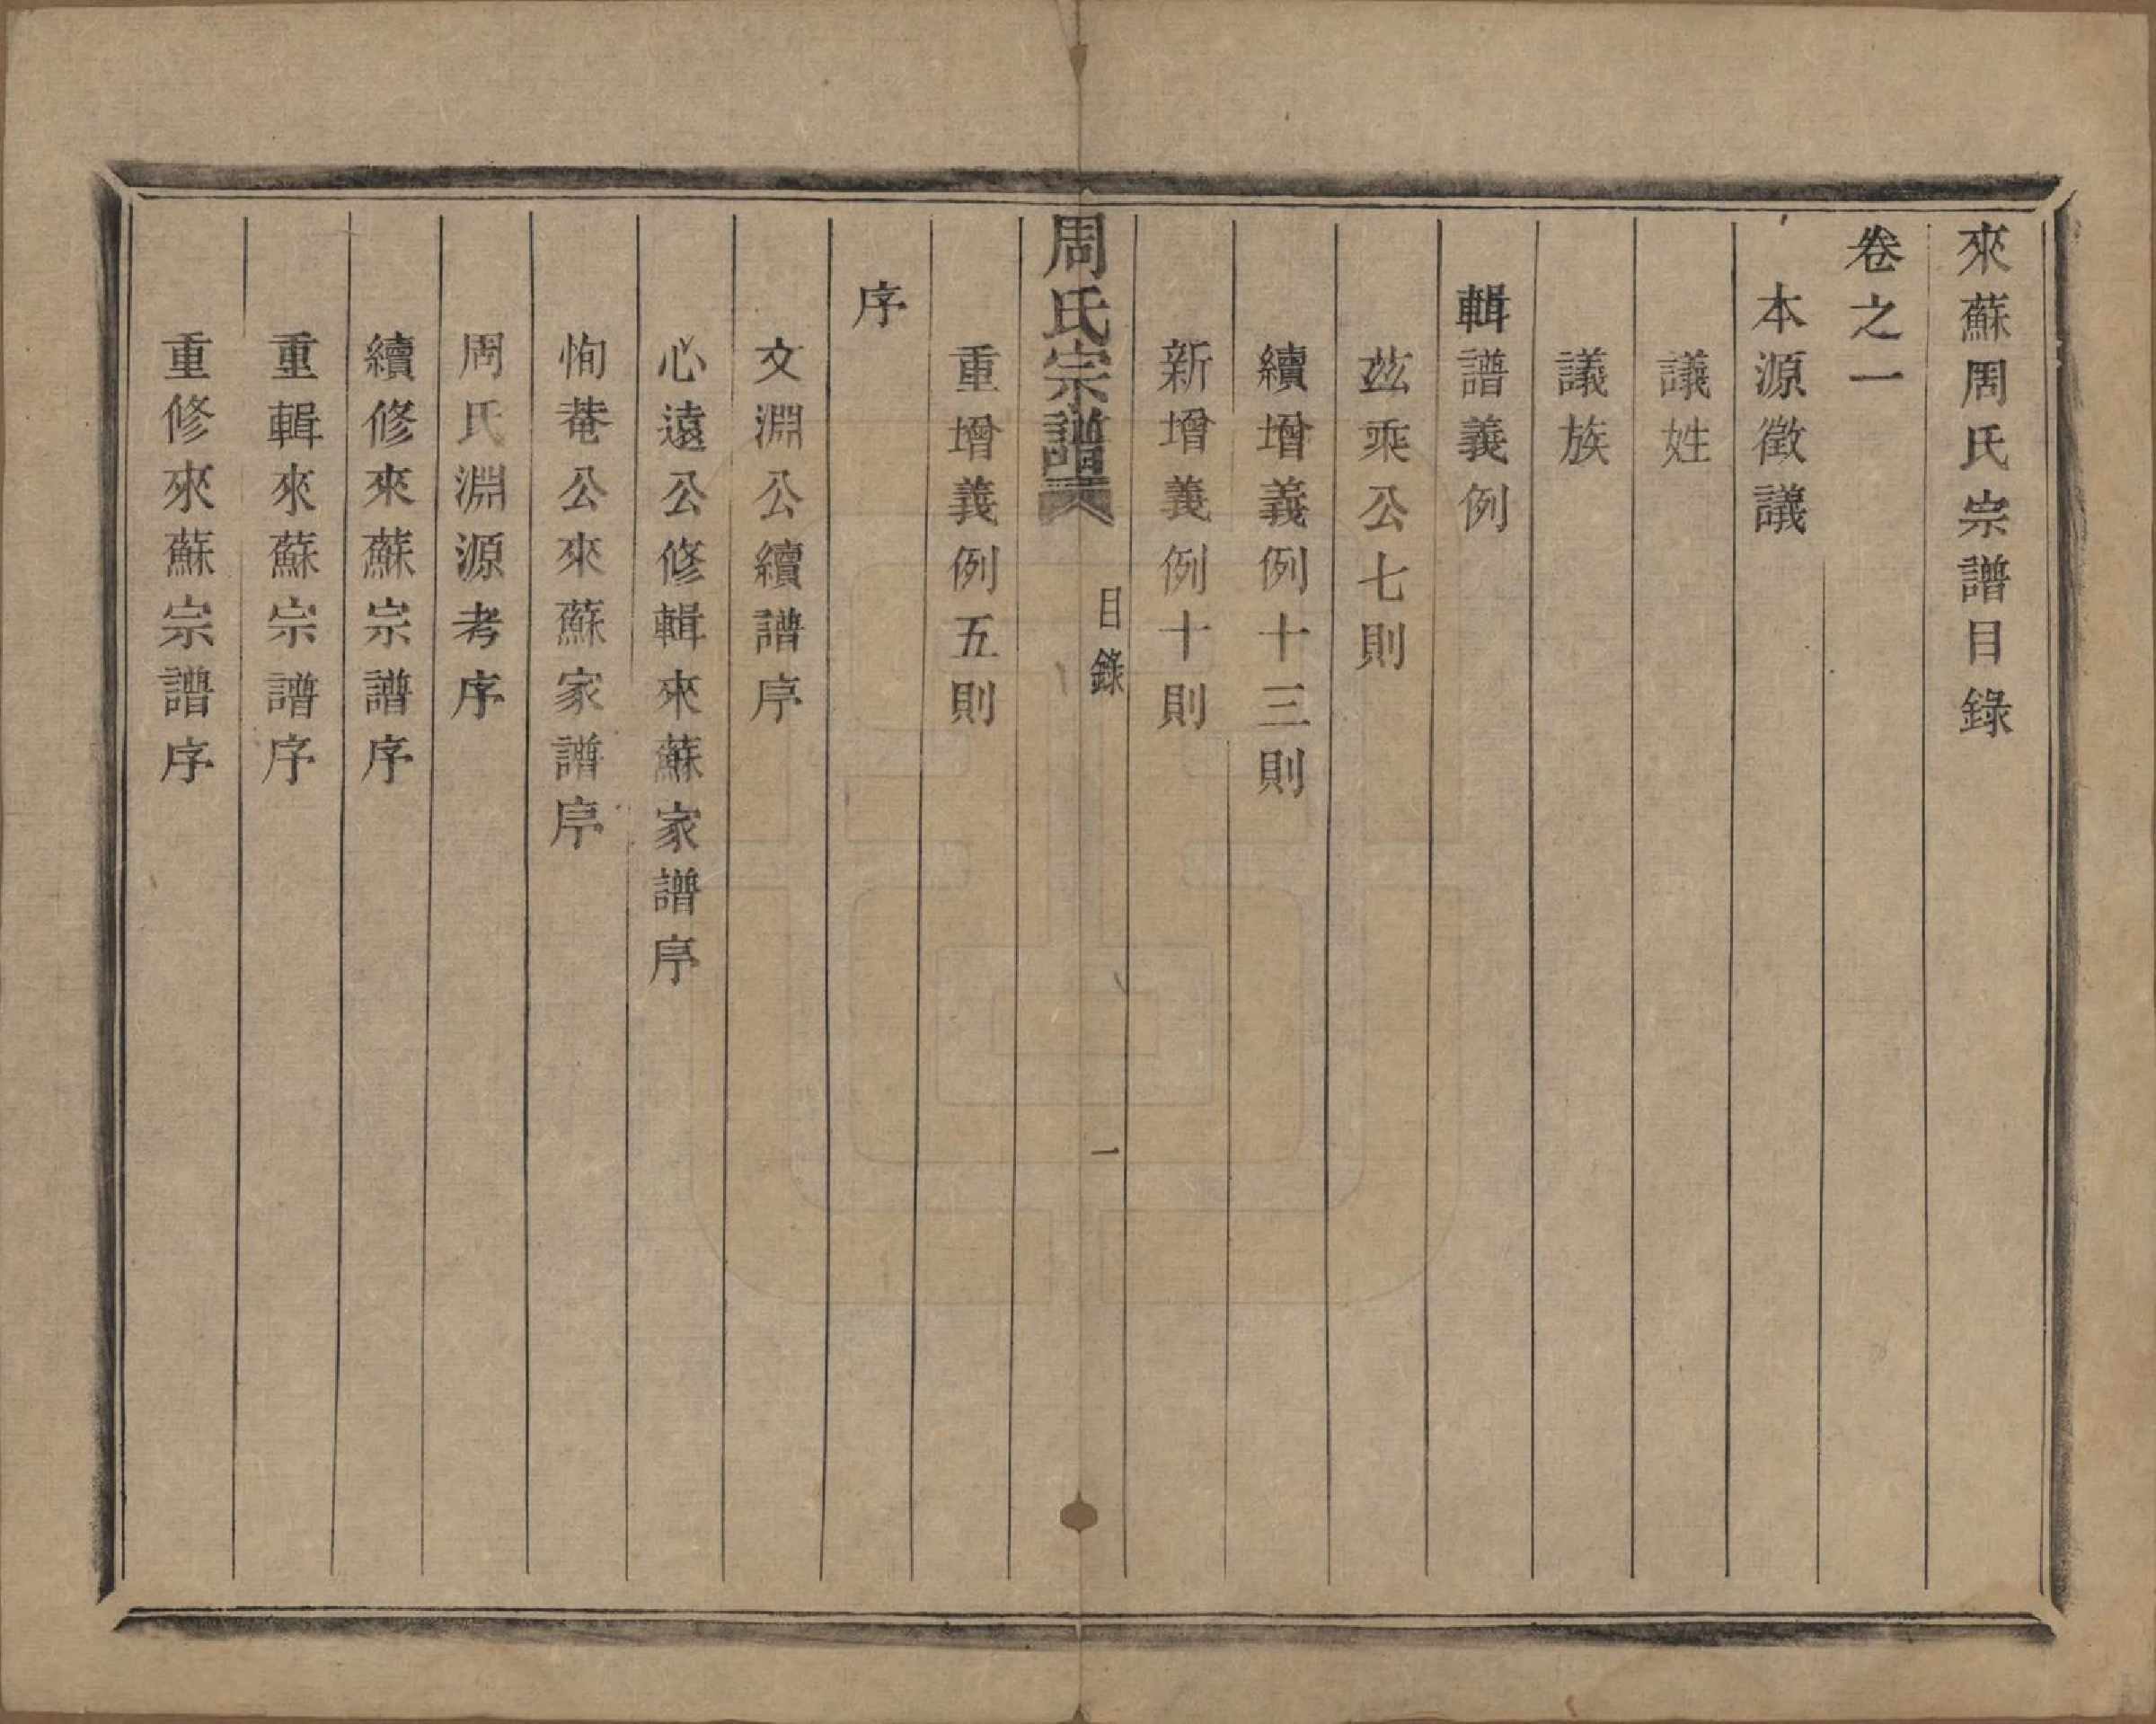 來蘇周氏宗譜目錄
卷之一
本源徵議
議姓
議族
輯譜義例
玆乘公七則
續增義例十三則
新增義例十則
周氏宗譜
目錄
一
重增義例五則
序
文淵公續譜序
心遠公修輯來蘇家譜序
恂菴公來蘇家譜序
周氏淵源考序
續修來蘇宗譜序
重輯來蘇宗譜序
重修來蘇宗譜序